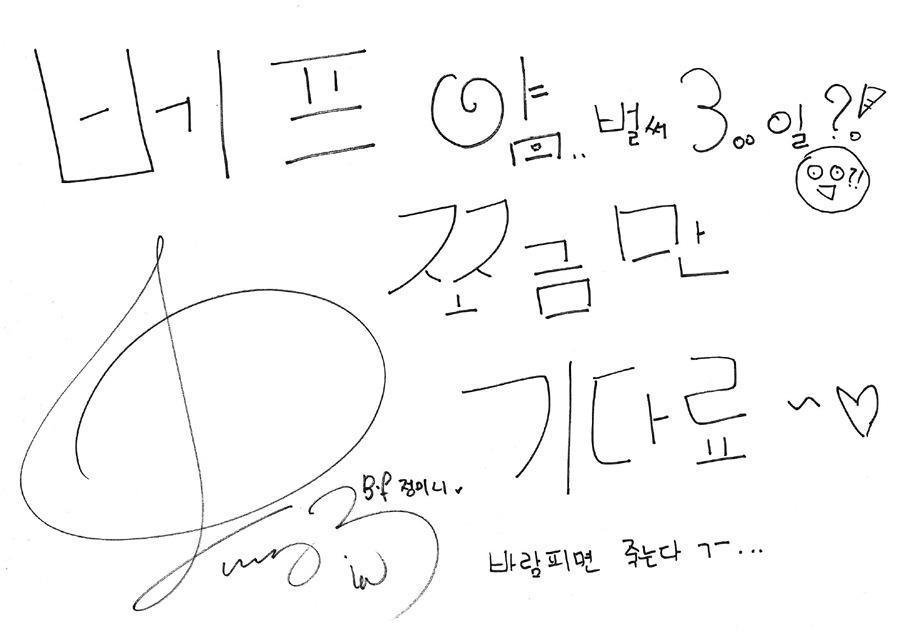 베프얌.. 벌써 300일?!
?!
쪼금만
기다료~♡
B.f 정이니♥
바람피면 죽는다 ㄱ-...